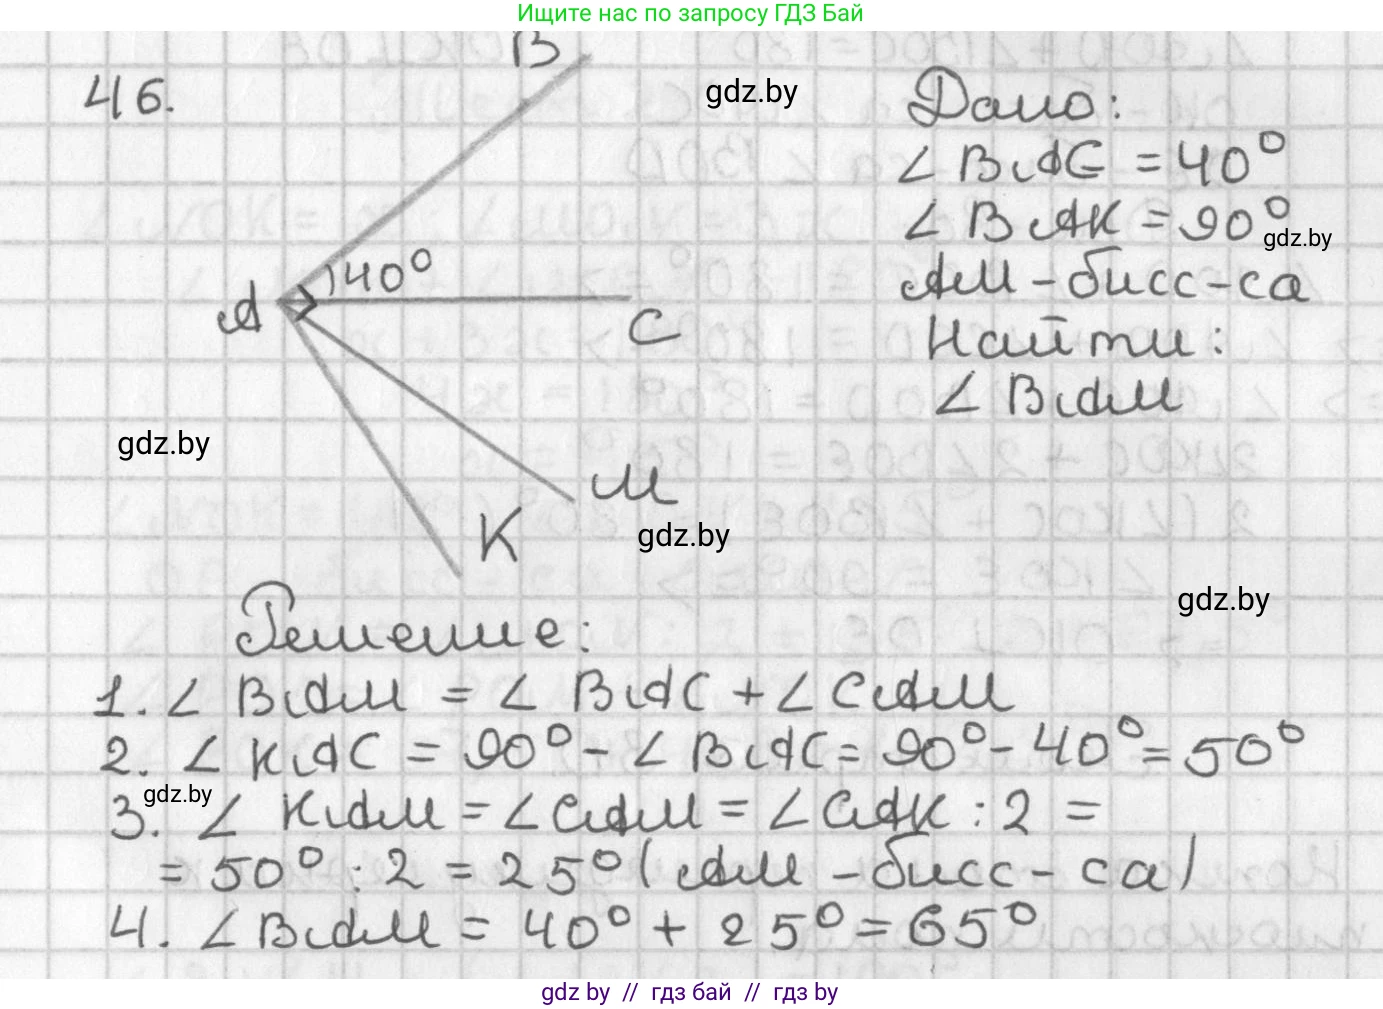 Ищите нас по запросу ГДЗ Бай
46.
B
gdz.by
Дано:
∠BAC = 40°
∠BAK = 90°
gdz.by
AM - бисс-са
Найти:
∠BAM
40°
A
C
gdz.by
M
K
gdz.by
gdz.by
Решение:
1. ∠BAM = ∠BAC + ∠CAM
2. ∠KAC = 90° - ∠BAC = 90° - 40° = 50°
gdz.by
3. ∠KAM = ∠CAM = ∠CAK : 2 =
= 50° : 2 = 25° (AM - бисс-са)
4. ∠BAM = 40° + 25° = 65°
gdz by // гдз бай // гдз by